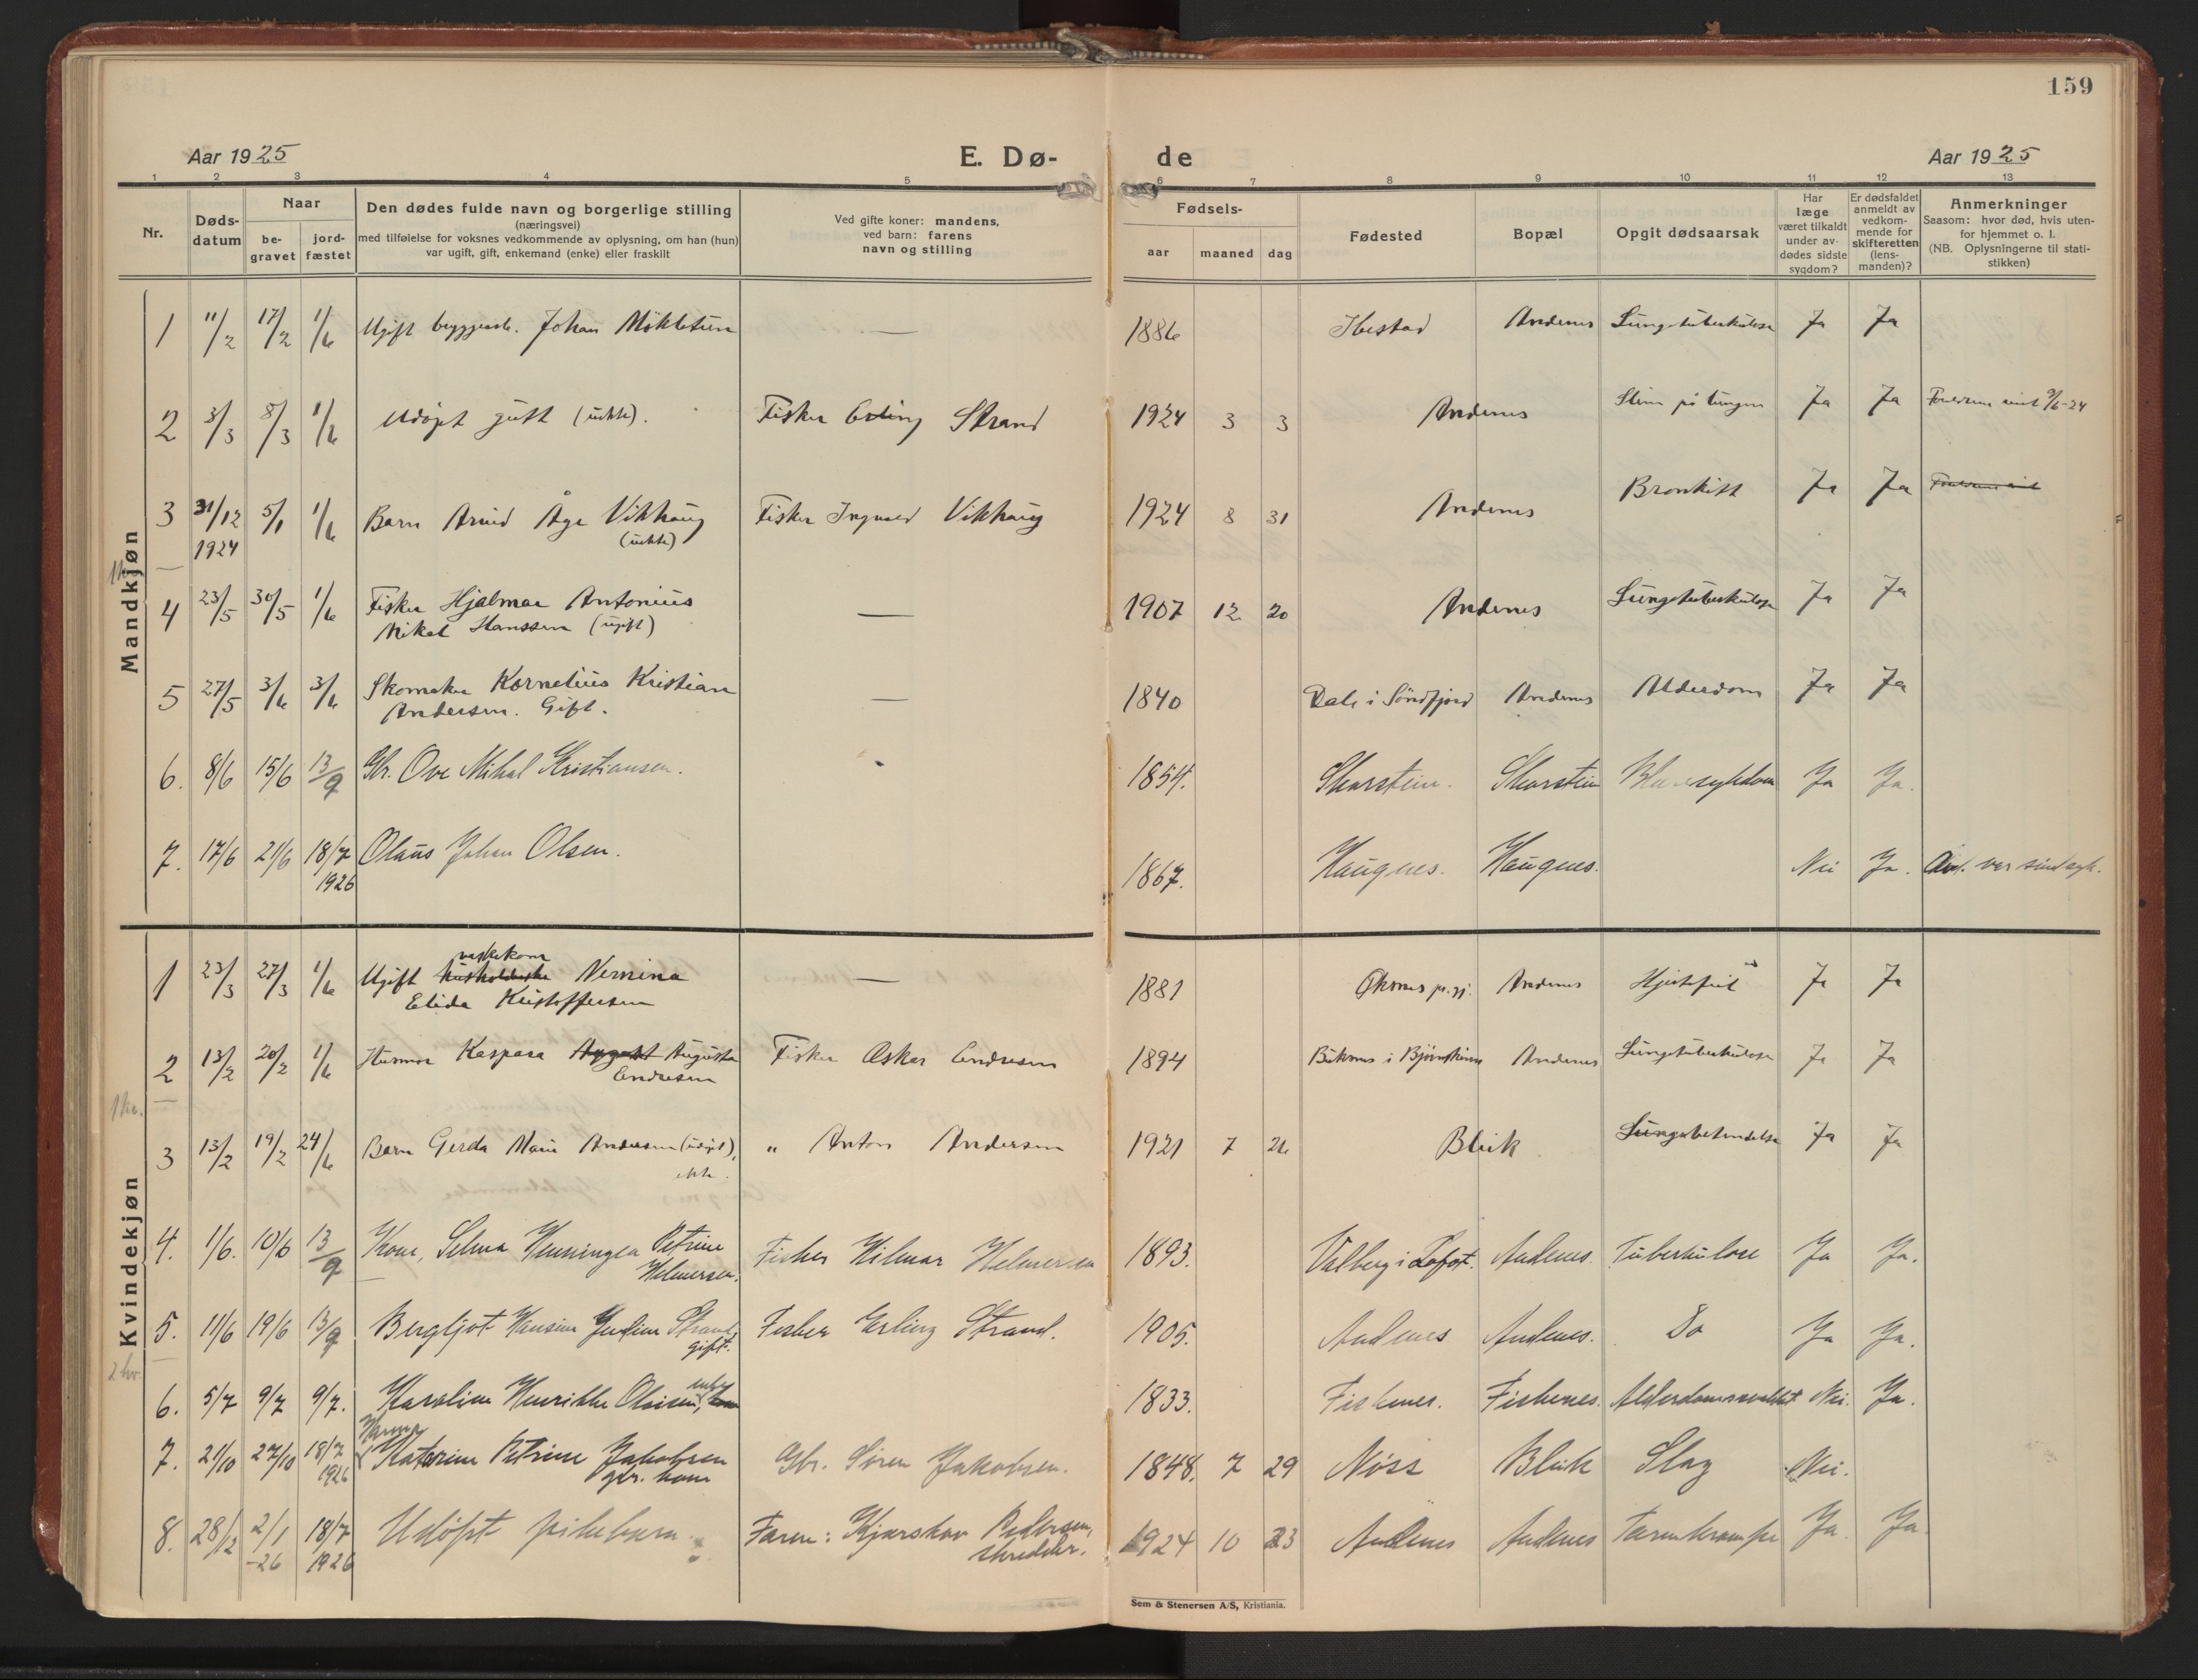 159
Aar 1925
E. Dø-
de
Aar 1925
1 2 3 4 5 6 7 8 9 10 11 12 13
Nr.
Døds-
datum
Naar
be-
gravet
jord-
fæstet
Den dødes fulde navn og borgerlige stilling
(næringsvei)
med tilføielse for voksnes vedkommende av oplysning, om han (hun)
var ugift, gift, enkemand (enke) eller fraskilt
Ved gifte koner: mandens,
ved barn: farens
navn og stilling
Fødsels-
aar
maaned
dag
Fødested
Bopæl
Opgit dødsaarsak
Har
læge
været tilkaldt
under av-
dødes sidste
sygdom?
Er dødsfaldet
anmeldt av
vedkom-
mende for
skifteretten
(lens-
manden)?
Anmerkninger
Saasom: hvor død, hvis uten-
for hjemmet o. l.
(NB. Oplysningerne til stati-
stikken)
Mandkjøn
1 11/2 17/2 1/6 Ugift Johan — 1886 Ibestad Andenes Lungetuberkulose Ja Ja
2 3/3 8/3 1/6 Udøpt gutt (uekte). Fisker Erling Strand 1924 3 3 Andenes Ja Ja
3 31/12 5/1 1/6 Barn Arvid Åge Vikhaug Fisker Ingvald Vikhaug 1924 8 31 Andenes Bronkitt Ja Ja
1924 (uekte)
4 23/5 30/5 1/6 Fisker Hjalmar Antonius — 1907 12 20 Andenes Lungetuberkulose Ja Ja
Mikal Hanssen (ugift)
5 27/5 3/6 3/6 Skomaker Kornelius Kristian — 1840 Dale i Søndfjord Andenes Alderdom Ja Ja
Andersen. Gift.
6. 8/6 15/6 13/9 Gbr. Ove Mikal Kristiansen. 1854. Skarstein. Skarstein Ja Ja.
7. 17/6 21/6 18/7 Olaus Johan Olsen. 1867. Haugnes. Haugnes. Nei Ja. var sindssyk.
1926
Kvindekjøn
vaskekone
1 23/3 27/3 1/6 Ugift Nernina — 1881 Øksnes Andenes Hjertefeil Ja Ja
Elida Kristoffersen
2 13/2 20/2 1/6 Husmor Kaspara August Augusta Fisker Oskar Endresen 1894 Buksnes i Bjørnskinn Andenes Lungetuberkulose Ja Ja
Endresen
1 kv.
3 13/2 19/2 24/6 Barn Gerda Marie Andersen (udøpt), " Anton Andersen 1921 7 26 Bleik Lungebetendelse Ja Ja
ekte.
4. 1/6. 10/6 13/9 Kone, Selma Henningea Petrine Fisker Hilmar Helmersen 1893. Valberg i Lofot. Andenes. Tuberkulose Ja Ja.
Helmersen.
5. 11/6 19/6 13/9 Bergljot Hansine Judine Strand Fisker Erling Strand. 1905. Andenes Andenes. Do Ja Ja.
gift.
2 kv.
enke
6. 5/7 9/7 9/7. Karoline Henrikke Olaisen, 1833. Fiskenes. Fiskenes. Alderdomssvakhet Nei. Ja.
Hanna
7. 21/10 27/10 18/7 Katarine Petrine Jakobsen Gbr. Søren Jakobsen. 1848. 7 29 Nöss Bleik Slag Nei.
1926 gbr. kone
8. 28/12 2/1 18/7 Udøpt pikebarn. Faren: Kjærskov Pedersen, 1924 10 23 Andenes Andenes Tarmkrampe Ja. Ja
-26 1926 skredder.
Sem & Stenersen A/S, Kristiania.